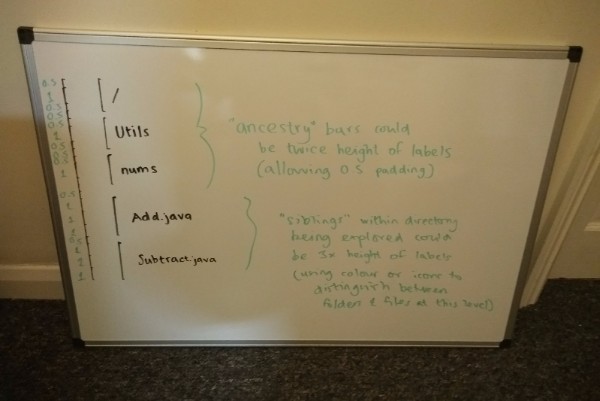 0.5
1
0.5
0.5
0.5
1
0.5
0.5
0.5
1
0.5
1
1
0.5
1
1
1
/
Utils
nums
Add.java
Subtract.java
"ancestry" bars could
be twice height of labels
(allowing 0.5 padding)
"siblings" within directory
being explored could
be 3x height of labels
(using colour or icons to
distinguish between
folders & files at this level)